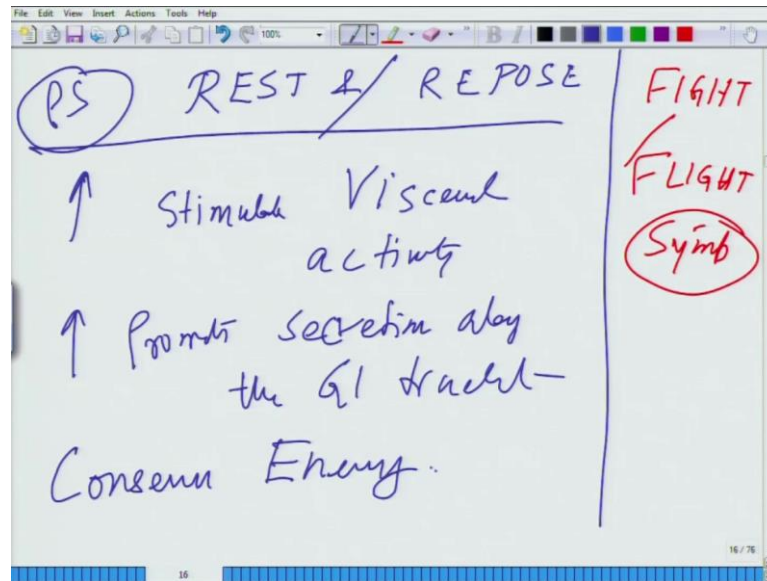 File Edit View Insert Actions Tools Help
100%
PS REST & REPOSE
↑ Stimulate Visceral
activity
↑ Promotes secretion along
the GI tract
Conserve Energy.
FIGHT
/
FLIGHT
Symp
16 / 76
16